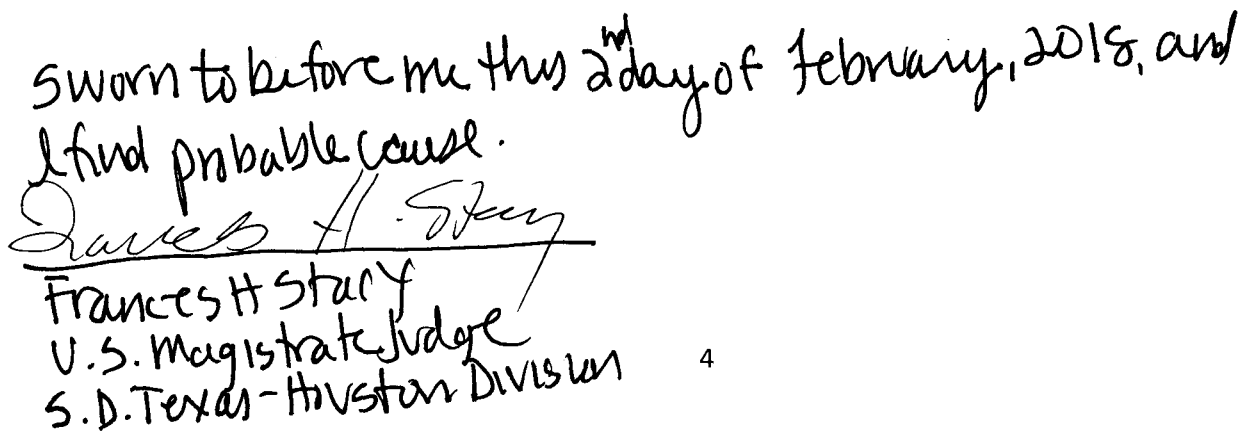 Sworn to before me this 2nd day of February, 2018, and
I find probable cause.
Frances H. Stacy
Frances H Stacy
U.S. Magistrate Judge
S.D. Texas - Houston Division
4